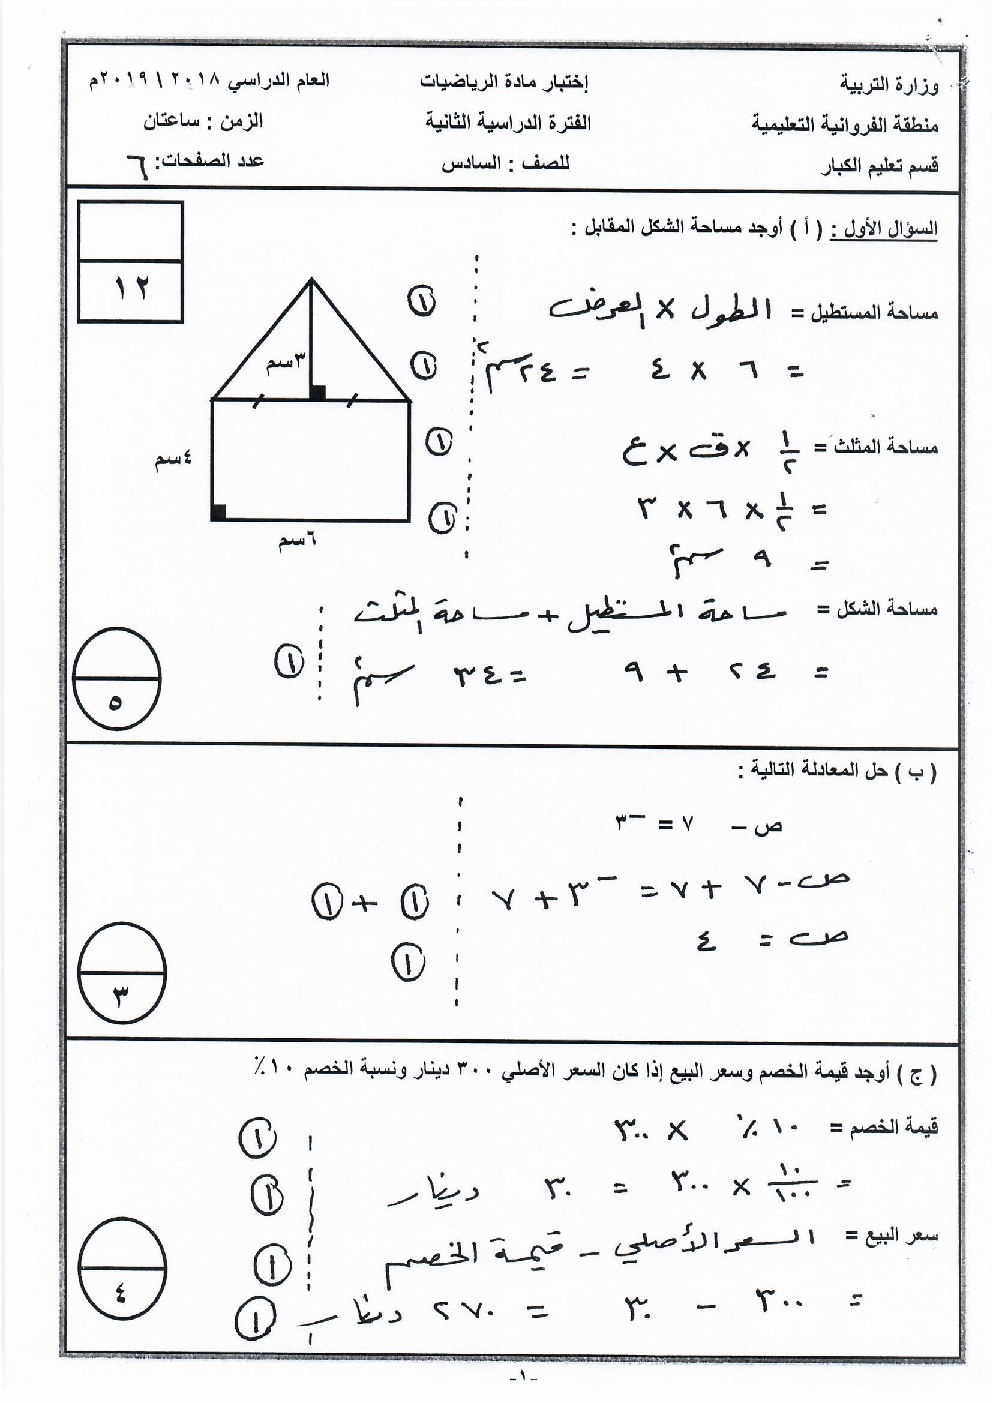 وزارة التربية
منطقة الفروانية التعليمية
قسم تعليم الكبار
إختبار مادة الرياضيات
الفترة الدراسية الثانية
للصف : السادس
العام الدراسي ٢٠١٨ \ ٢٠١٩م
الزمن : ساعتان
عدد الصفحات: ٦
١٢
السؤال الأول : ( أ ) أوجد مساحة الشكل المقابل :
مساحة المستطيل = الطول × العرض ①
= ٦ × ٤ = ٢٤ سم٢ ①
مساحة المثلث = ١/٢ × ق × ع ①
= ١/٢ × ٦ × ٣ ①
= ٩ سم٢
مساحة الشكل = مساحة المستطيل + مساحة المثلث
= ٢٤ + ٩ = ٣٤ سم٢ ①
٣سم
٤سم
٦سم
٥
( ب ) حل المعادلة التالية :
ص – ٧ = ⁻٣
ص - ٧ + ٧ = ⁻٣ + ٧ ① + ①
ص = ٤ ①
٣
( ج ) أوجد قيمة الخصم وسعر البيع إذا كان السعر الأصلي ٣٠٠ دينار ونسبة الخصم ١٠٪
قيمة الخصم = ١٠ ٪ × ٣٠٠ ①
= ١٠/١٠٠ × ٣٠٠ = ٣٠ دينار ①
سعر البيع = السعر الأصلي – قيمة الخصم ①
= ٣٠٠ – ٣٠ = ٢٧٠ دينار ①
٤
-١-